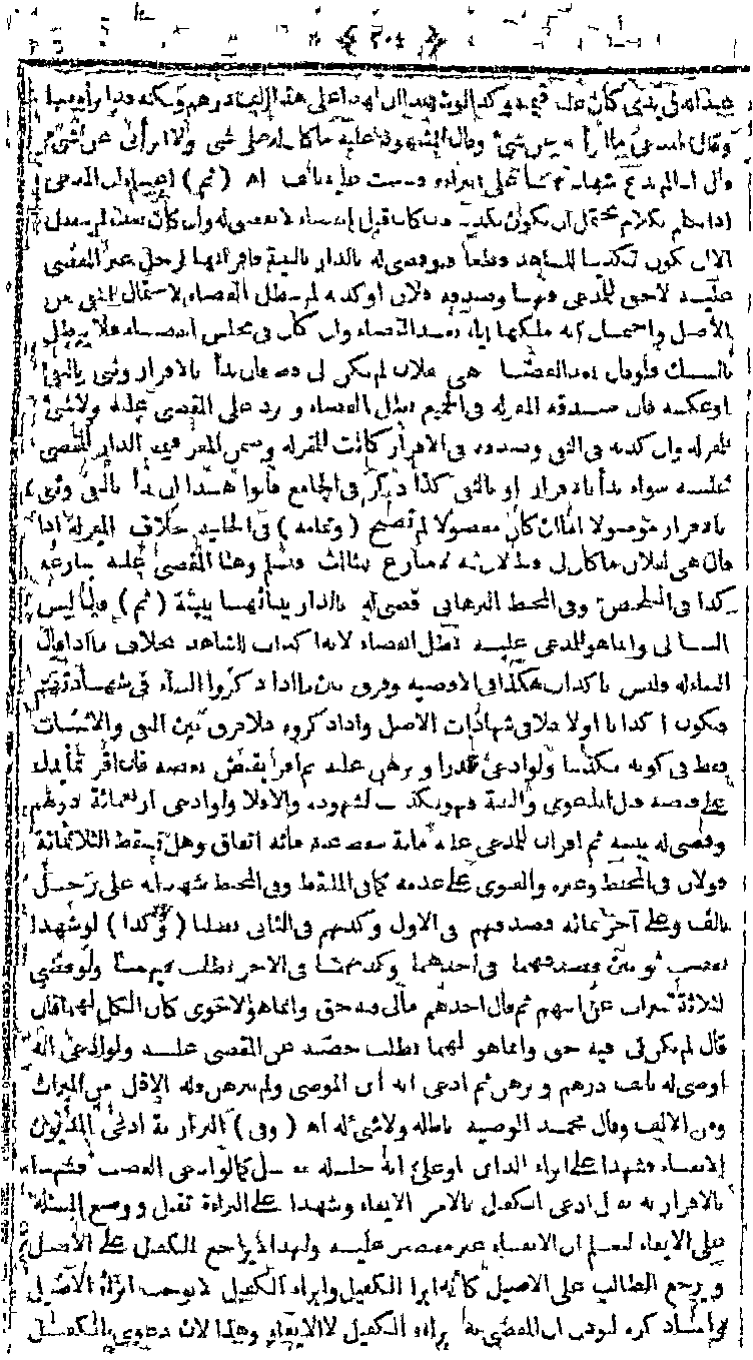 ﴿ ٢٠٤ ﴾
هذا له في يدي كان عليه قيمته وكذا لو شهدا ان لهذا على هذا الف درهم ولكنه قد ابرأه منها
وقال المدعي ما ابرأته من شيء وقال المشهود عليه ما كان له علي شيء ولا ابرأني عن شيء
قال اذا لم يدع شهادتهما على البراءة قضيت عليه بالف اه (ثم) اعلم ان المدعي
اذا تكلم بكلام يحتمل ان يكون تكذيبا فان كان قبل القضاء لا يقضي له وان كان بعده لم يبطل
الا ان يكون تكذيبا للشاهد قطعا فلو قضي له بالدار بالبينة فاقر انها لرجل غير المقضي
عليه لا حق للمدعي فيها وصدقه فلان او كذبه لم يبطل القضاء لاحتمال النفي من
الأصل واحتمل انه ملكها اياه بعد القضاء وان كان في مجلس القضاء فلا يبطل
بالشك فلو قال بعد القضاء هي لفلان لم يكن لي قط فان بدأ بالاقرار وثنى بالنفي
او عكسه فان صدقه المقر له في الجميع بطل القضاء ويرد على المقضي عليه ولا شيء
للمقر له وان كذبه في النفي وصدقه في الاقرار كانت للمقر له وضمن المقر قيمة الدار للمقضي
عليه سواء بدأ بالاقرار او بالنفي كذا ذكر في الجامع قالوا هذا ان بدأ بالنفي وثنى
بالاقرار موصولا اما ان كان مفصولا لم تصح (وتمامه) في الخانية بخلاف المقر له اذا
قال هي لفلان ما كان لي قط لانه لا منازع ثالث فتسلم وهنا المقضي عليه ينازعه
كذا في التلخيص وفي المحيط البرهاني قضي له بالدار ببنائها ببينة (ثم) قال ليس
البناء لي وانما هو للمدعى عليه بطل القضاء لانه اكذاب للشاهد بخلاف ما اذا قال
البناء له فليس باكذاب هكذا في الاقضية وفرق بين ما اذا ذكروا البناء في شهادتهم
فيكون اكذابا اولا فلا في شهادات الاصل واذا ذكروه فلا فرق بين النفي والاثبات
فقط في كونه مكذبا ولو ادعى قدرا وبرهن عليه ثم اقر بقبض بعضه فان اقر بما يدل
على قبضه قبل الدعوى والبينة فهو يكذب لشهوده والا فلا ولو ادعى اربعمائة درهم
وقضي له ببينة ثم اقر ان للمدعى عليه مائة سقط عنه مائة اتفاقا وهل تسقط الثلاثمائة
قولان في المحيط وغيره والفتوى على عدمه كما في الملتقط وفي المحيط شهدا له على رجل
بالف وعلى آخر بمائة فصدقهم في الاول وكذبهم في الثاني بطلتا (وكذا) لو شهدا
بغصب ثوبين فصدقهما في احدهما وكذبهما في الآخر بطلت فيهما ولو قضي
لثلاثة بميراث عن ابيهم ثم قال احدهم ما لي فيه حق وانما هو لاخوي كان الكل لهما فان
قال لم يكن لي فيه حق وانما هو لهما بطلت حصته عن المقضي عليه ولو ادعى انه
اوصى له بالف درهم وبرهن ثم ادعى انه ابن الموصي ولم يبرهن فله الاقل من الميراث
ومن الالف وقال محمد الوصية باطلة ولا شيء له اه (وفي) البزازية ادعى المديون
الايفاء فشهدا على ابراء الدائن او على انه حلله تقبل كما لو ادعى الغصب فشهدا
بالاقرار به تقبل ادعى الكفيل بالامر الايفاء وشهدا على البراءة تقبل ووضع المسئلة
على الايفاء ليعلم ان الايفاء غير مقتصر عليه ولهذا لا يراجع الكفيل على الأصيل
ويرجع الطالب على الاصيل كأنه ابرا الكفيل وابراء الكفيل لا يوجب ابراء الأصيل
وانما ذكره ليؤذن ان المقضي به براءة الكفيل لا الايفاء وهذا لان دعوى الكفيل